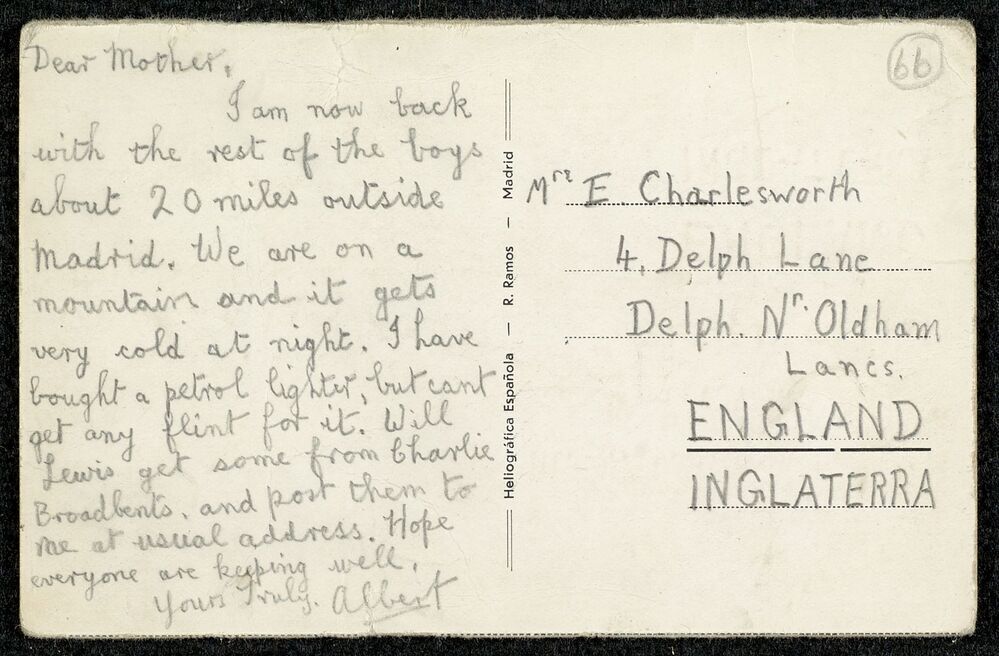 Dear Mother,
I am now back
with the rest of the boys
about 20 miles outside
Madrid. We are on a
mountain and it gets
very cold at night. I have
bought a petrol lighter, but cant
get any flint for it. Will
Lewis get some from Charlie
Broadbents, and post them to
me at usual address. Hope
everyone are keeping well.
Yours Truly. Albert
Heliográfica Española — R. Ramos — Madrid
66
Mrs E. Charlesworth
4, Delph Lane
Delph. Nr. Oldham
Lancs.
ENGLAND
INGLATERRA